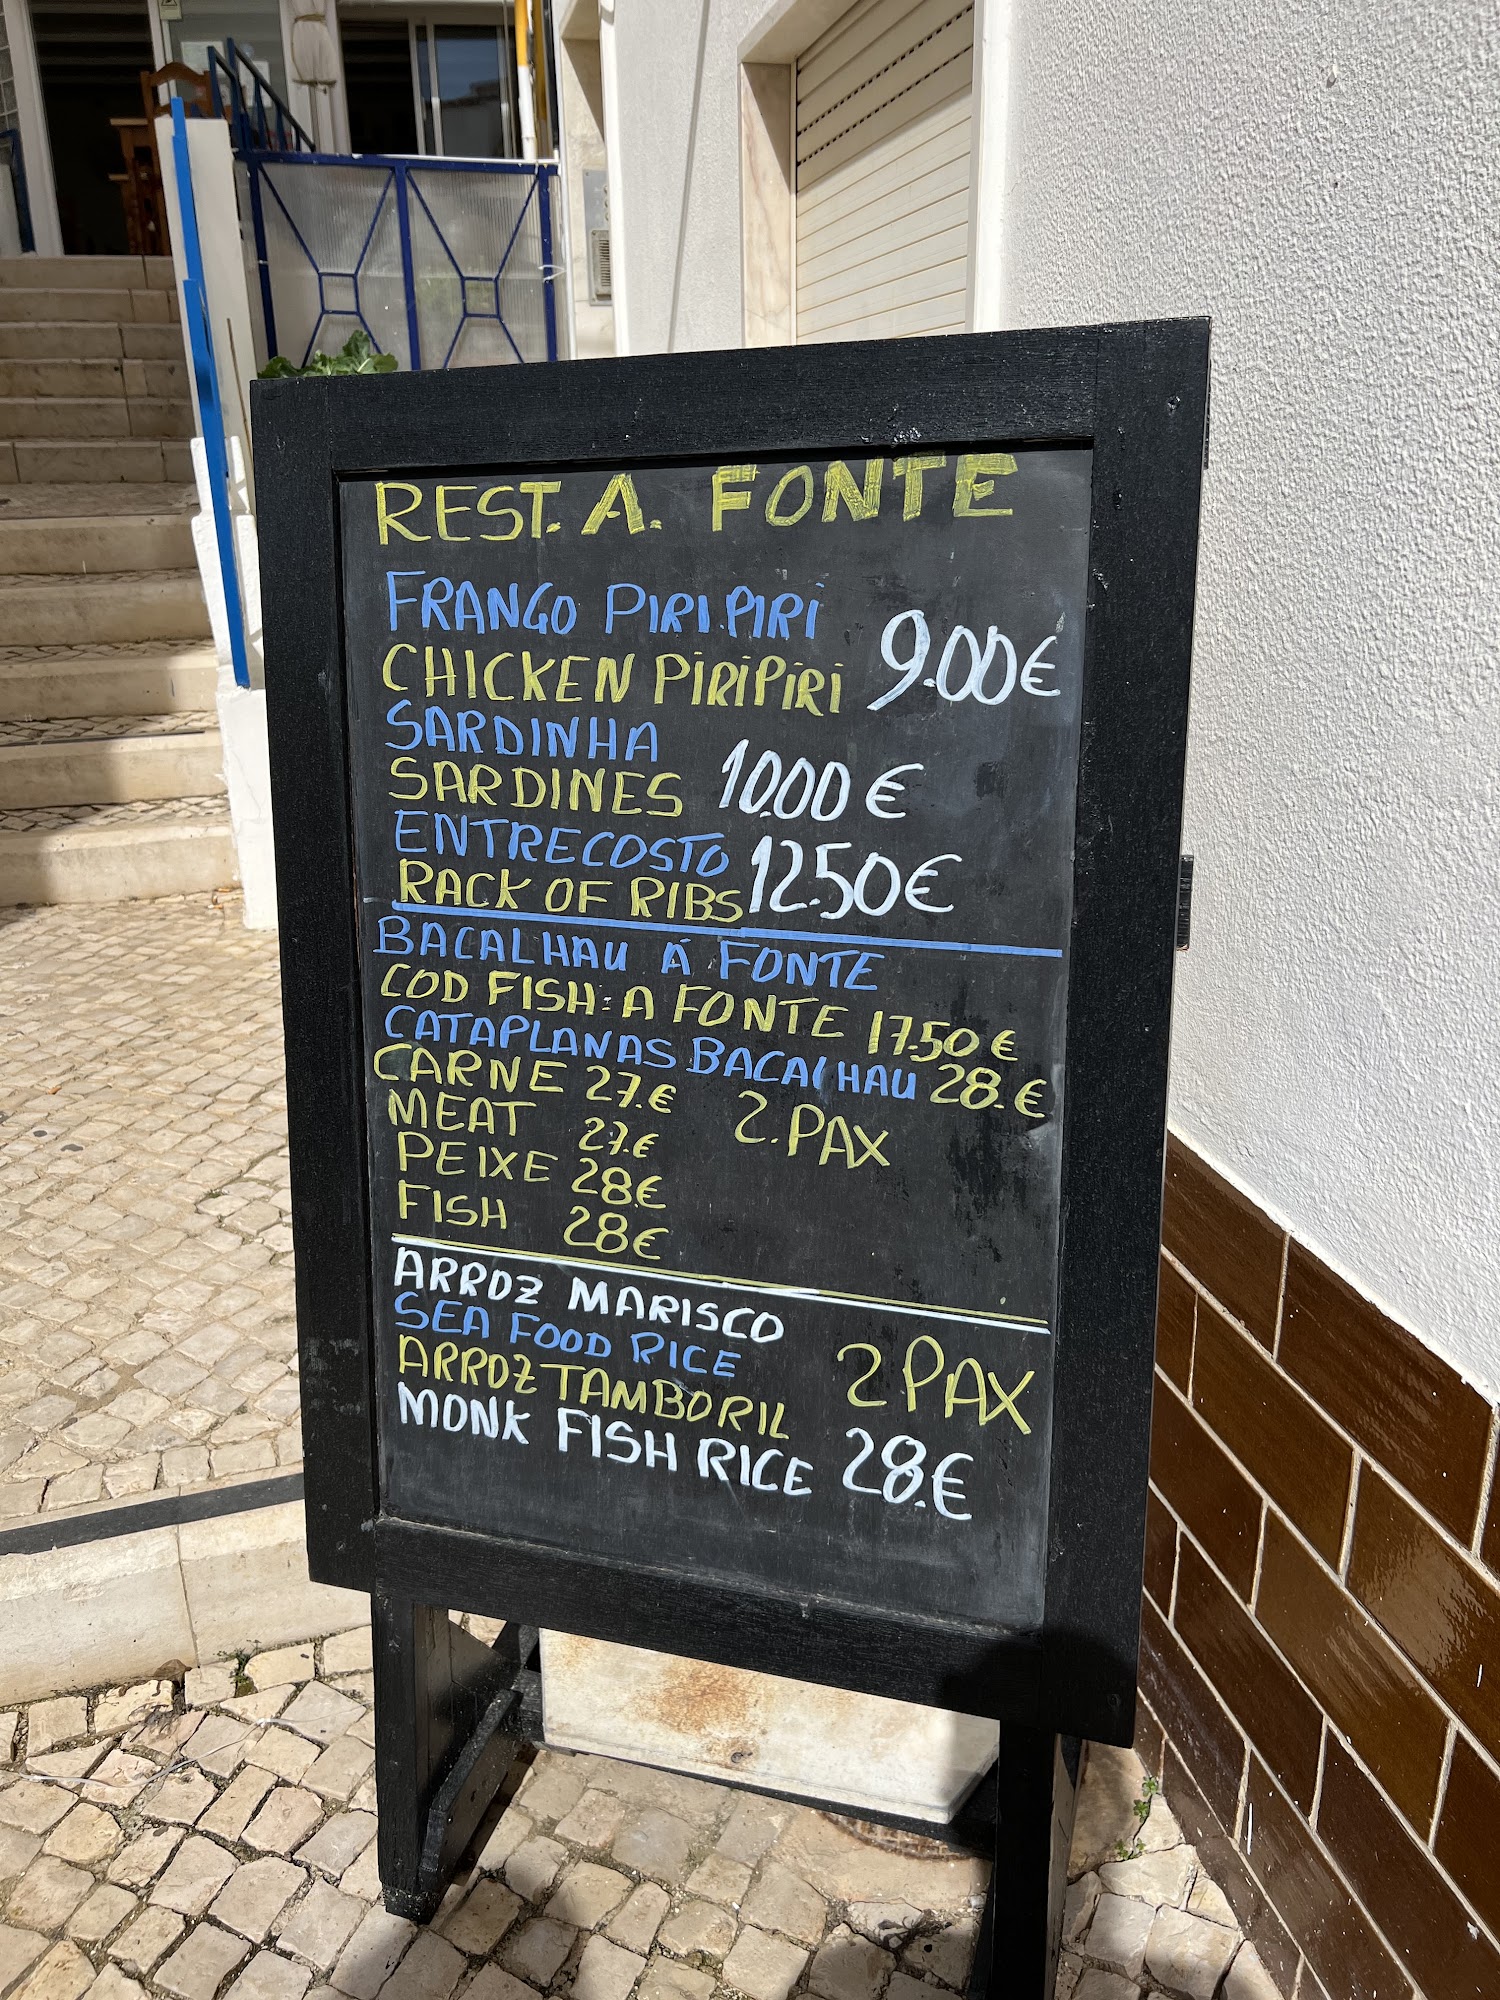 REST. A. FONTE
FRANGO PIRI.PIRI
CHICKEN PIRIPIRI 9.00€
SARDINHA
SARDINES 10.00€
ENTRECOSTO
RACK OF RIBS 12.50€
BACALHAU Á FONTE
COD FISH: A FONTE 17.50€
CATAPLANAS BACALHAU 28.€
CARNE 27.€ 2.PAX
MEAT 27.€
PEIXE 28€
FISH 28€
ARROZ MARISCO
SEA FOOD RICE 2 PAX
ARROZ TAMBORIL
MONK FISH RICE 28.€